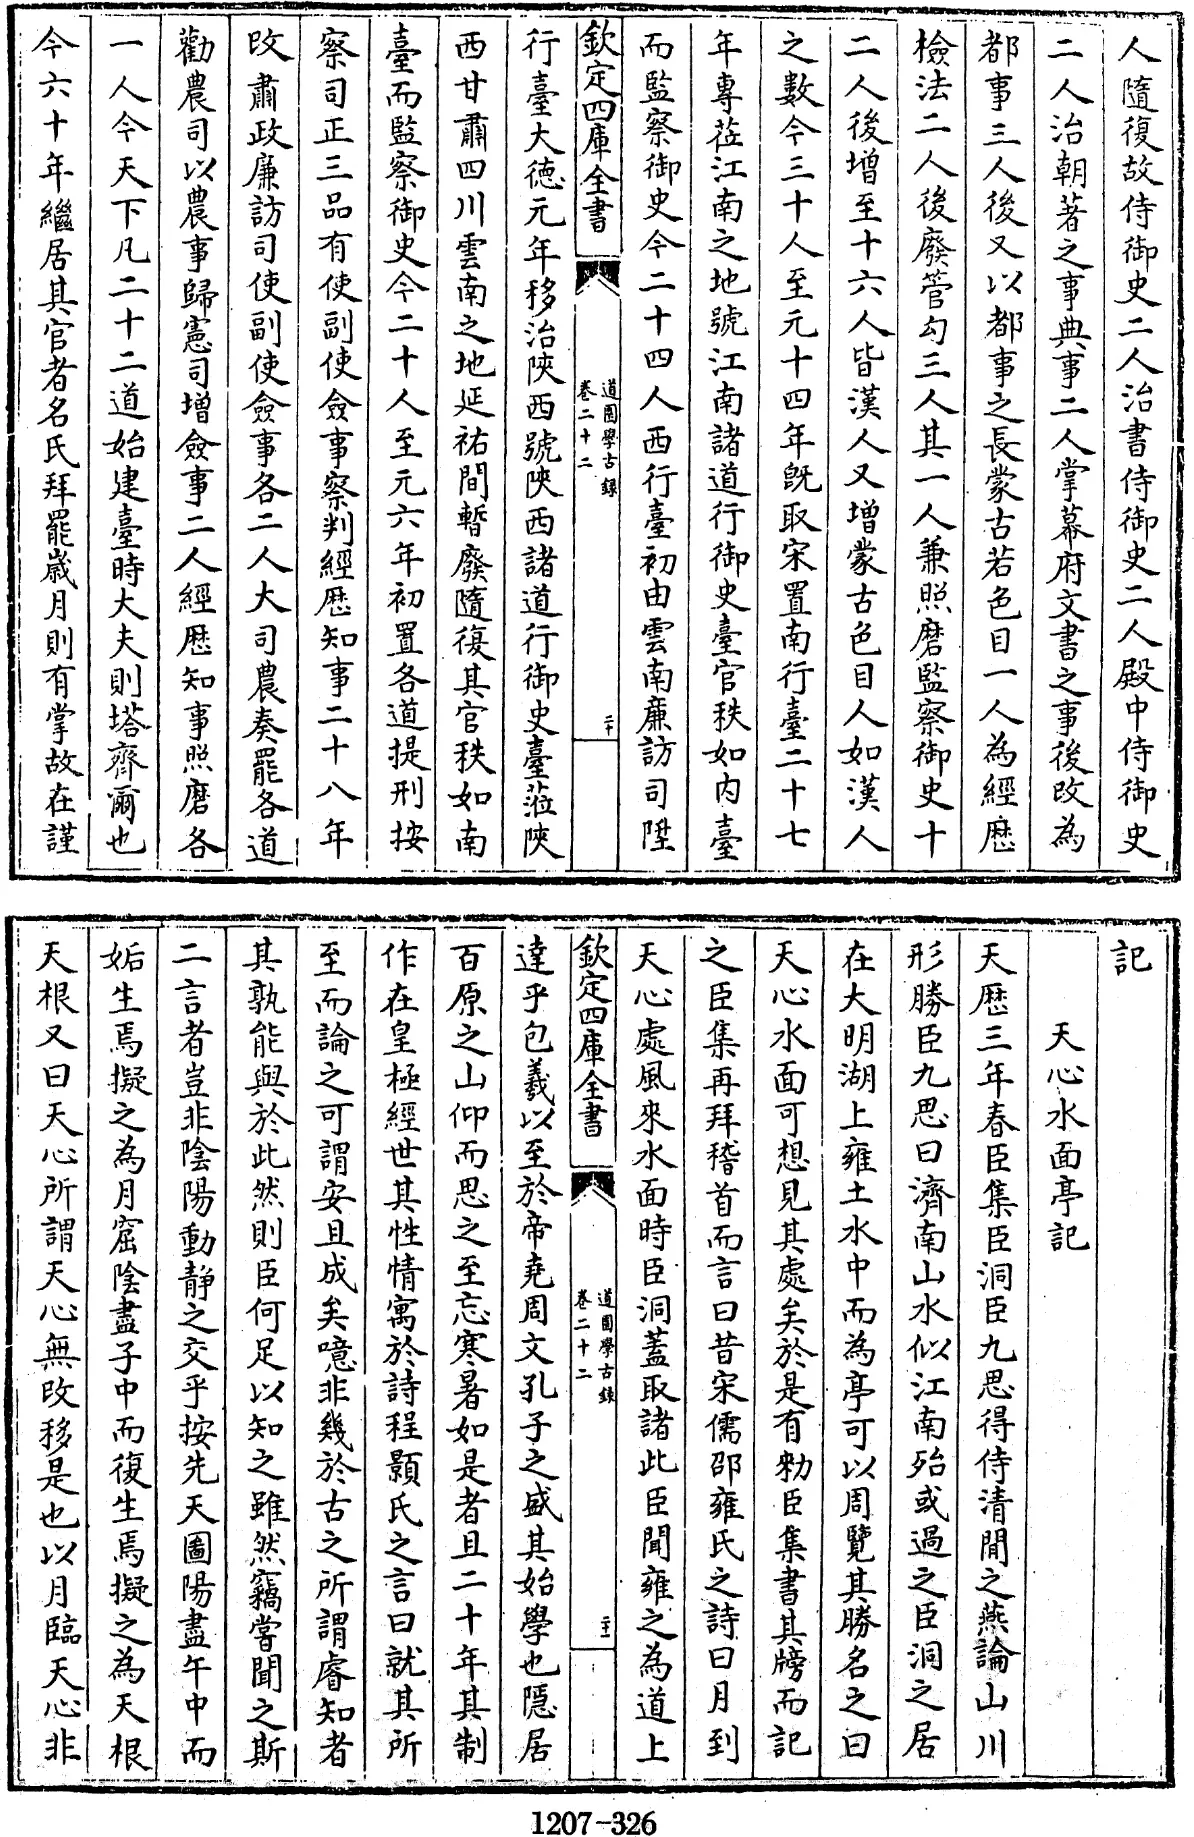 人隨復故侍御史二人治書侍御史二人殿中侍御史
二人治朝著之事典事二人掌幕府文書之事後改為
都事三人後又以都事之長蒙古若色目一人為經歷
檢法二人後廢管勾三人其一人兼照磨監察御史十
二人後增至十六人皆漢人又增蒙古色目人如漢人
之數今三十人至元十四年旣取宋置南行臺二十七
年專莅江南之地號江南諸道行御史臺官秩如内臺
而監察御史今二十四人西行臺初由雲南廉訪司陞
欽定四庫全書
道園學古録
卷二十二
二十
行臺大德元年移治陝西號陝西諸道行御史臺涖陝
西甘肅四川雲南之地延祐間暫廢隨復其官秩如南
臺而監察御史今二十人至元六年初置各道提刑按
察司正三品有使副使僉事察判經歷知事二十八年
改肅政廉訪司使副使僉事各二人大司農奏罷各道
勸農司以農事歸憲司增僉事二人經歷知事照磨各
一人今天下凡二十二道始建臺時大夫則塔齊爾也
今六十年繼居其官者名氏拜罷歲月則有掌故在謹
記
天心水面亭記
天歷三年春臣集臣洞臣九思得侍清閒之燕論山川
形勝臣九思曰濟南山水似江南殆或過之臣洞之居
在大明湖上雍土水中而為亭可以周覽其勝名之曰
天心水面可想見其處矣於是有勅臣集書其牓而記
之臣集再拜稽首而言曰昔宋儒邵雍氏之詩曰月到
天心處風來水面時臣洞蓋取諸此臣聞雍之為道上
欽定四庫全書
道園學古録
卷二十二
二十一
達乎包羲以至於帝堯周文孔子之盛其始學也隱居
百原之山仰而思之至忘寒暑如是者且二十年其制
作在皇極經世其性情寓於詩程顥氏之言曰就其所
至而論之可謂安且成矣噫非幾於古之所謂睿知者
其孰能與於此然則臣何足以知之雖然竊嘗聞之斯
二言者豈非陰陽動静之交乎按先天圖陽盡午中而
姤生焉擬之為月窟陰盡子中而復生焉擬之為天根
天根又曰天心所謂天心無改移是也以月臨天心非
1207-326